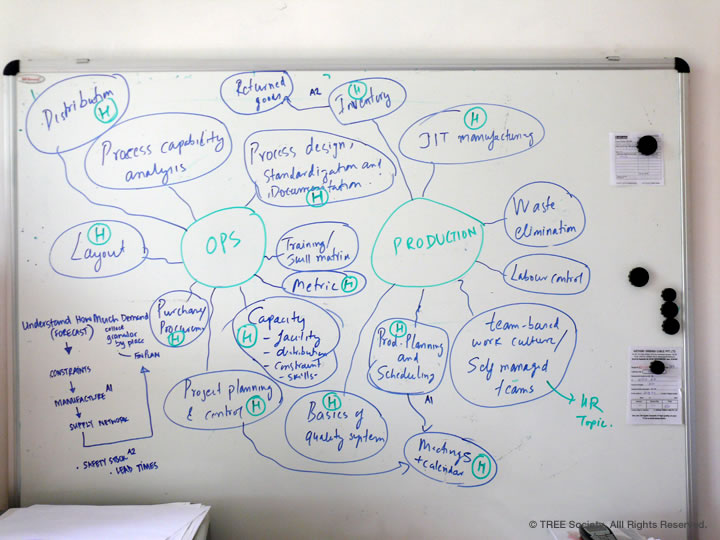 Distribution
H
Process capability
analysis
Returned
goods
A2
H
Inventory
H
JIT manufacturing
Process design,
standardization and
Documentation
H
Layout
H
OPS
Training/
skill matrix
Metric H
PRODUCTION
Waste
elimination
Labour control
Purchase/
H
Capacity
H
- facility
- distribution
- constraint
- skills
H
Prod. Planning
and
Scheduling
team-based
work culture/
Self managed
teams
HR
Topic.
Project planning
& control H
H
Basics of
quality system
A1
Meetings
+ calendar H
Understand How Much Demand
(FORECAST)
by place
CONSTRAINTS
MANUFACTURE A1
SUPPLY NETWORK
• SAFETY STOCK A2
• LEAD TIMES
© TREE Society. All Rights Reserved.